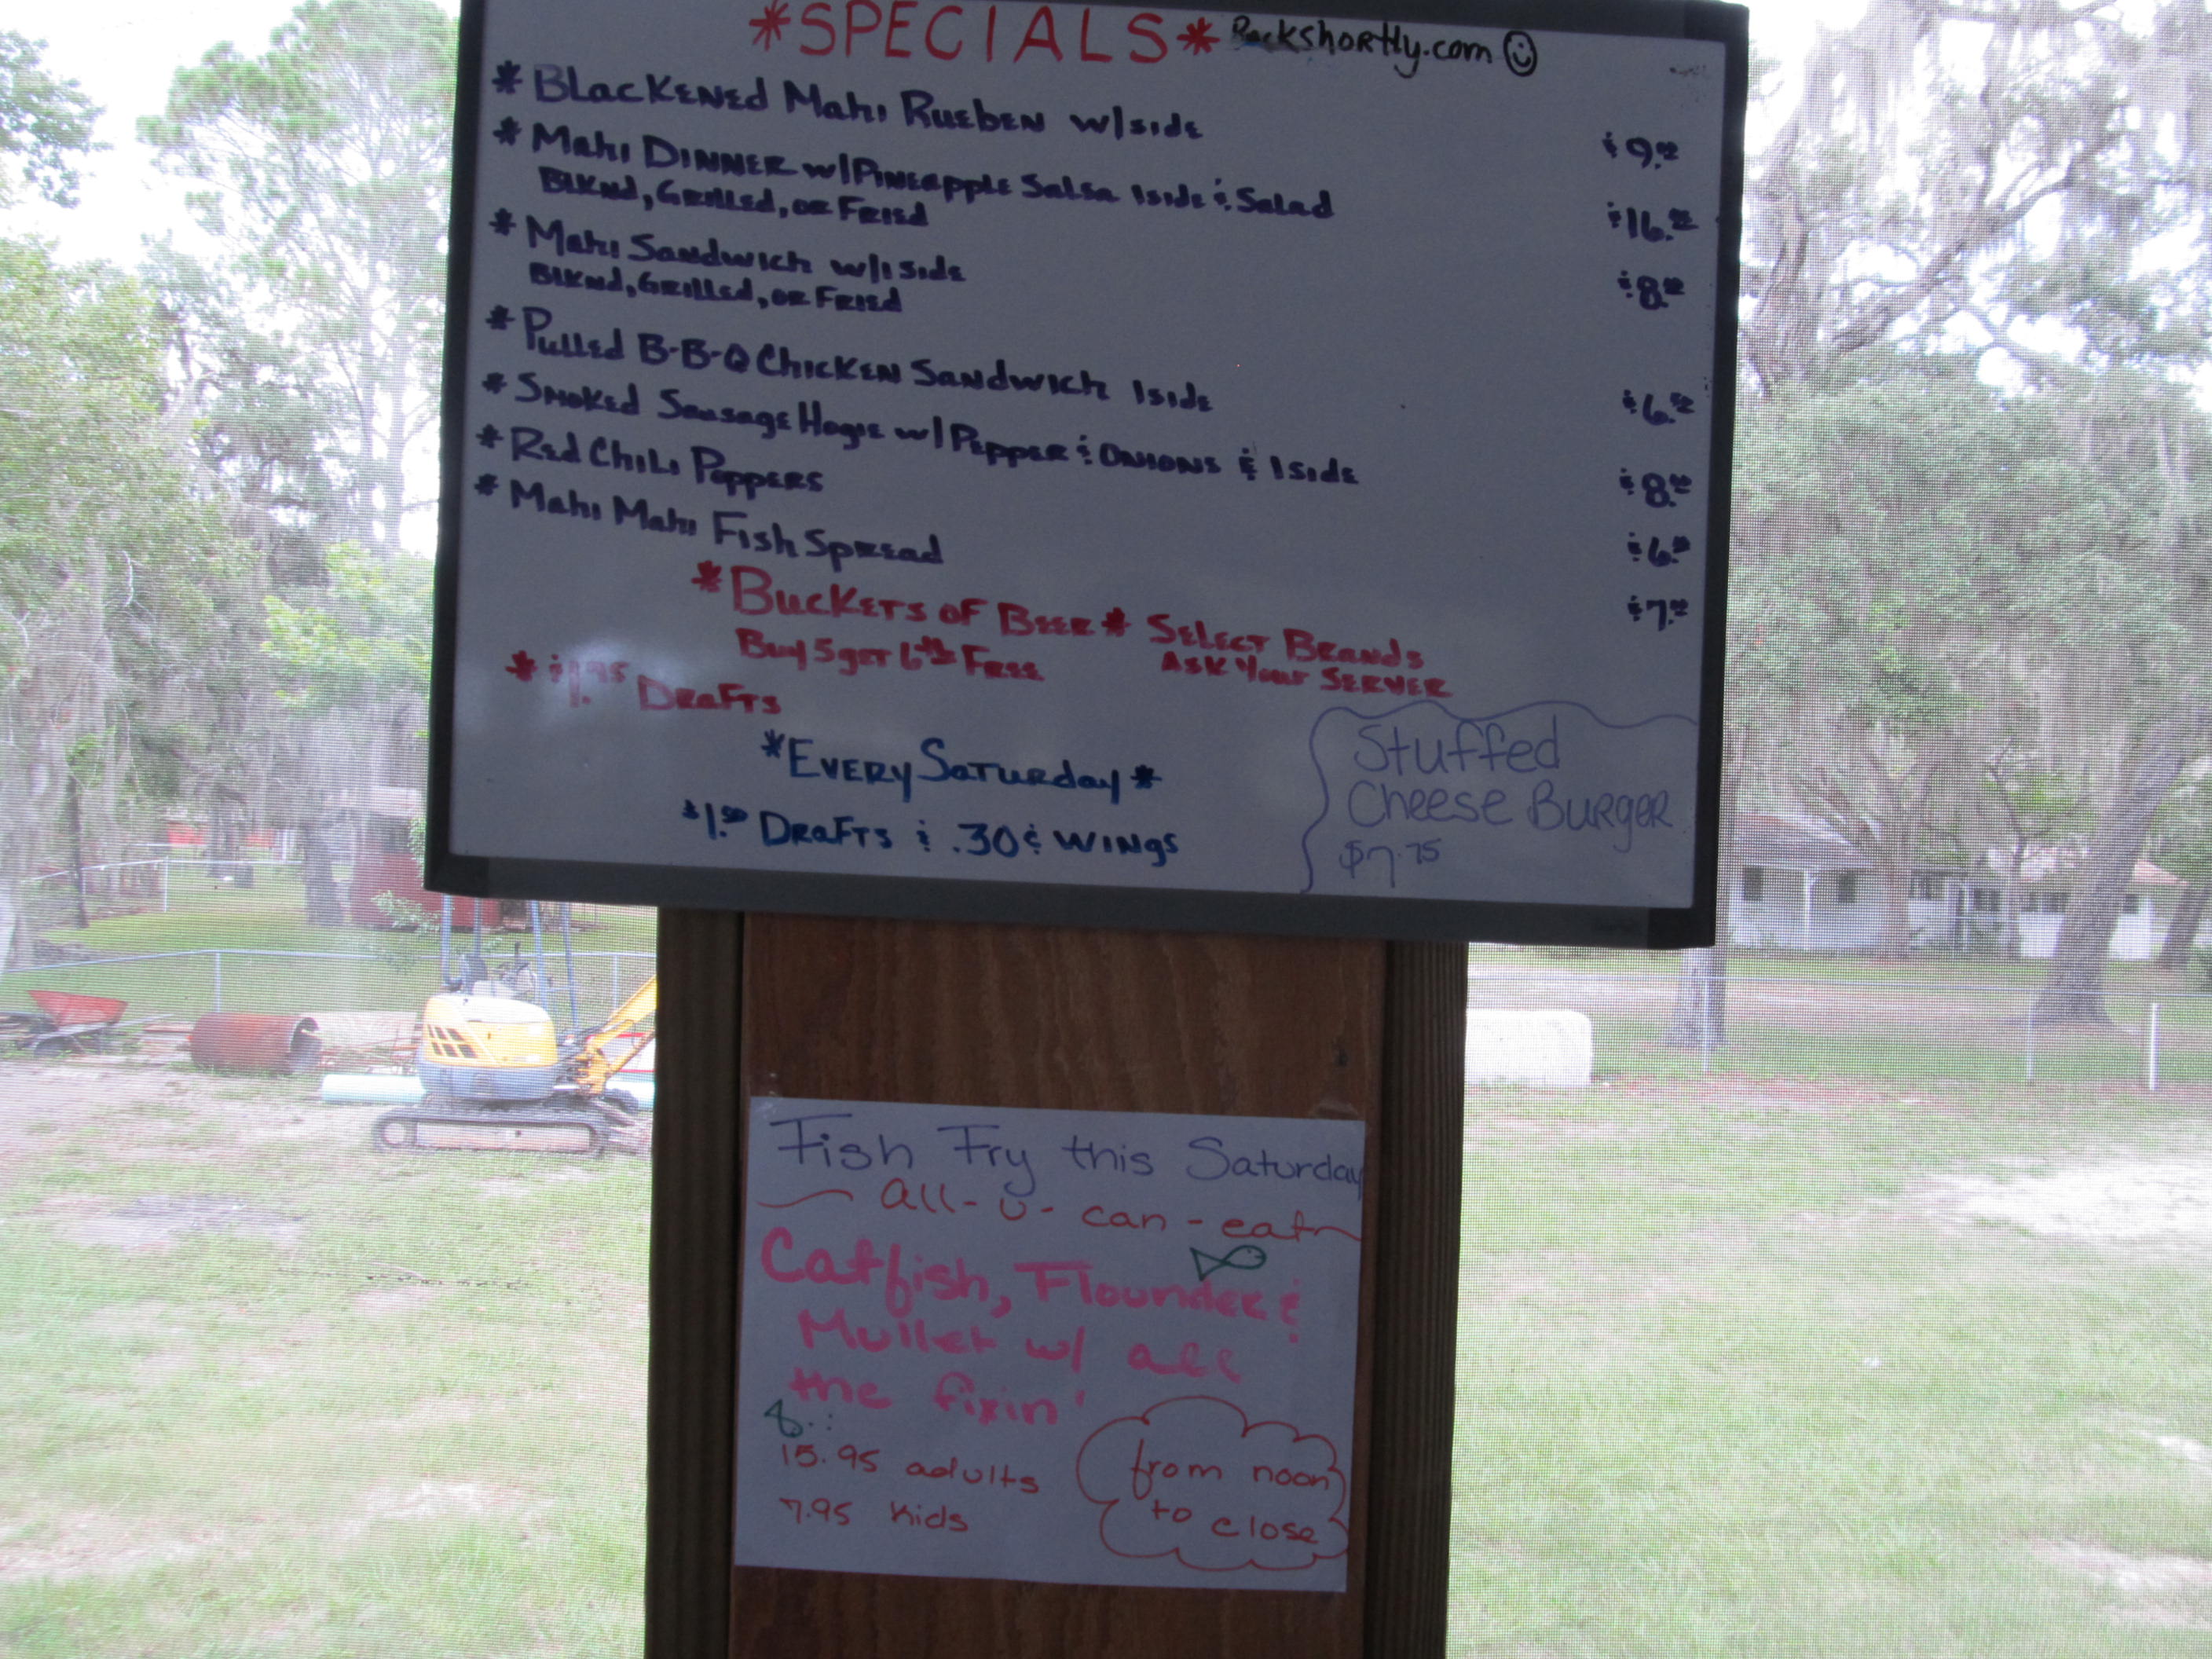 *SPECIALS* Backshortly.com
* Blackened Mahi Rueben w/side $9.00
* Mahi Dinner w/Pineapple Salsa 1side & Salad $16.00
Blknd, Grilled, or Fried
* Mahi Sandwich w/1 side $8.00
Blknd, Grilled, or Fried
* Pulled B-B-Q Chicken Sandwich 1side $6.50
* Smoked Sausage Hogie w/Pepper & Onions & 1side $8.00
* Red Chili Poppers $6.00
* Mahi Mahi Fish Spread $7.00
*Buckets of Beer* Select Brands
Buy 5 get 6th Free Ask Your Server
* $1.95 Drafts
*Every Saturday*
$1.50 Drafts & .30¢ Wings
Stuffed
Cheese Burger
$7.75
Fish Fry this Saturday
all-u-can-eat
Catfish, Flounder &
Mullet w/ all
the fixin'
15.95 adults
7.95 kids
from noon
to close